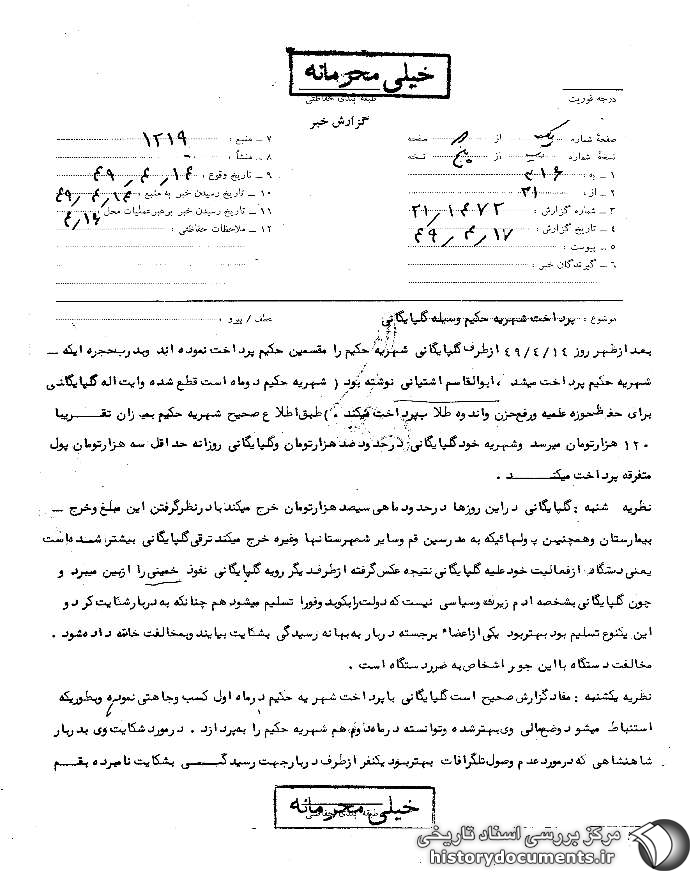 خیلی محرمانه
درجه فوریت
طبقه بندی حفاظتی
گزارش خبر
صفحهٔ شماره یک از صفحه
نسخهٔ شماره از پنج نسخه
۱ ــ به : ۳۱۶
۲ ــ از : ۲۱
۳ ــ شماره گزارش : ۲۱/۱۴۷۲
۴ ــ تاریخ گزارش : ۴۹/۴/۱۷
۵ ــ پیوست :
۶ ــ گیرندگان خبر :
۷ ــ منبع : ۱۲۱۹
۸ ــ منشأ :
۹ ــ تاریخ وقوع : ۴۹/۴/۱۴
۱۰ ــ تاریخ رسیدن خبر به منبع : ۴۹/۴/۱۴
۱۱ ــ تاریخ رسیدن خبر برهبر عملیات محل ۴/۱۶
۱۲ ــ ملاحظات حفاظتی :
موضوع : پرداخت شهریه حکیم وسیله گلپایگانی
عطف / پیرو :
بعد ازظهر روز ۴۹/۴/۱۴ ازطرف گلپایگانی شهریه حکیم را مقسمین حکیم پرداخت نموده اند وبدرب حجره ایکه ــ
شهریه حکیم پرداخت میشد ، ابوالقاسم اشتیانی نوشته بود ( شهریه حکیم دوماه است قطع شده وایت اله گلپایگانی
برای حفظ حوزه علمیه ورفع حزن واندوه طلاب پرداخت میکند . ) طبق اطلاع صحیح شهریه حکیم بمیزان تقریبا
۱۲۰ هزارتومان میرسد وشهریه خود گلپایگانی درحدود صد هزارتومان وگلپایگانی روزانه حداقل سه هزارتومان پول
متفرقه پرداخت میکنــد .
نظریه شنبه : گلپایگانی در این روزها درحدود ماهی سیصد هزارتومان خرج میکند بادرنظرگرفتن این مبلغ وخرج ــ
بیمارستان وهمچنین پولهائیکه به مدرسین قم وسایر شهرستانها وغیره خرج میکند ترقی گلپایگانی بیشتر شده است
یعنی دستگاه ازفعالیت خود علیه گلپایگانی نتیجه عکس گرفته ازطرف دیگر رویه گلپایگانی نفوذ خمینی را ازبین میبرد و
چون گلپایگانی بشخصه ادم زیرفه وسیاسی نیست که دولت رابکوبد وفورا تسلیم میشود هم چنانکه به دربار شکایت کرد و
این یکنوع تسلیم بود بهتربود یکی ازاعضاء برجسته دربار به بهانه رسیدگی بشکایت بیایند وبمخالفت خاتمه داده شود .
مخالفت دستگاه با این جور اشخاص به ضرر دستگاه است .
نظریه یکشنبه : مفاد گزارش صحیح است گلپایگانی با پرداخت شهریه حکیم درماه اول کسب وجاهتی نموده وبطوریکه
استنباط میشود وضع مالی وی بهتر شده وتوانسته درماه دوم هم شهریه حکیم را به پردازد . درمورد شکایت وی بدربار
شاهنشاهی که درمورد عدم وصول تلگرافات بهتربود یکنفر ازطرف دربار جهت رسیدگــی بشکایت نامبرده بقــم
خیلی محرمانه
طبقه بندی حفاظتی
مرکز بررسی اسناد تاریخی
historydocuments.ir